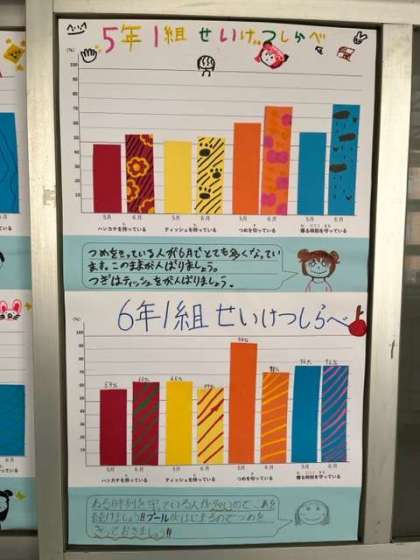 5年1組 せいけつしらべ
(%)
100
90
80
70
60
50
40
30
20
10
0
5月 6月 5月 6月 5月 6月 5月 6月
ハンカチを持っている ティッシュを持っている つめを切っている 寝る時刻を守っている
つめをきっている人が6月でとても多くなってい
ます。このままがんばりましょう。
つぎはティッシュをがんばりましょう。
6年1組 せいけつしらべ
(%)
100
90
80
70
60
50
40
30
20
10
0
5月 6月 5月 6月 5月 6月 5月 6月
ハンカチを持っている ティッシュを持っている つめを切っている 寝る時刻を守っている
ねる時刻を守っている人が
プールがはじまるのでつめを
きっておきましょう!!